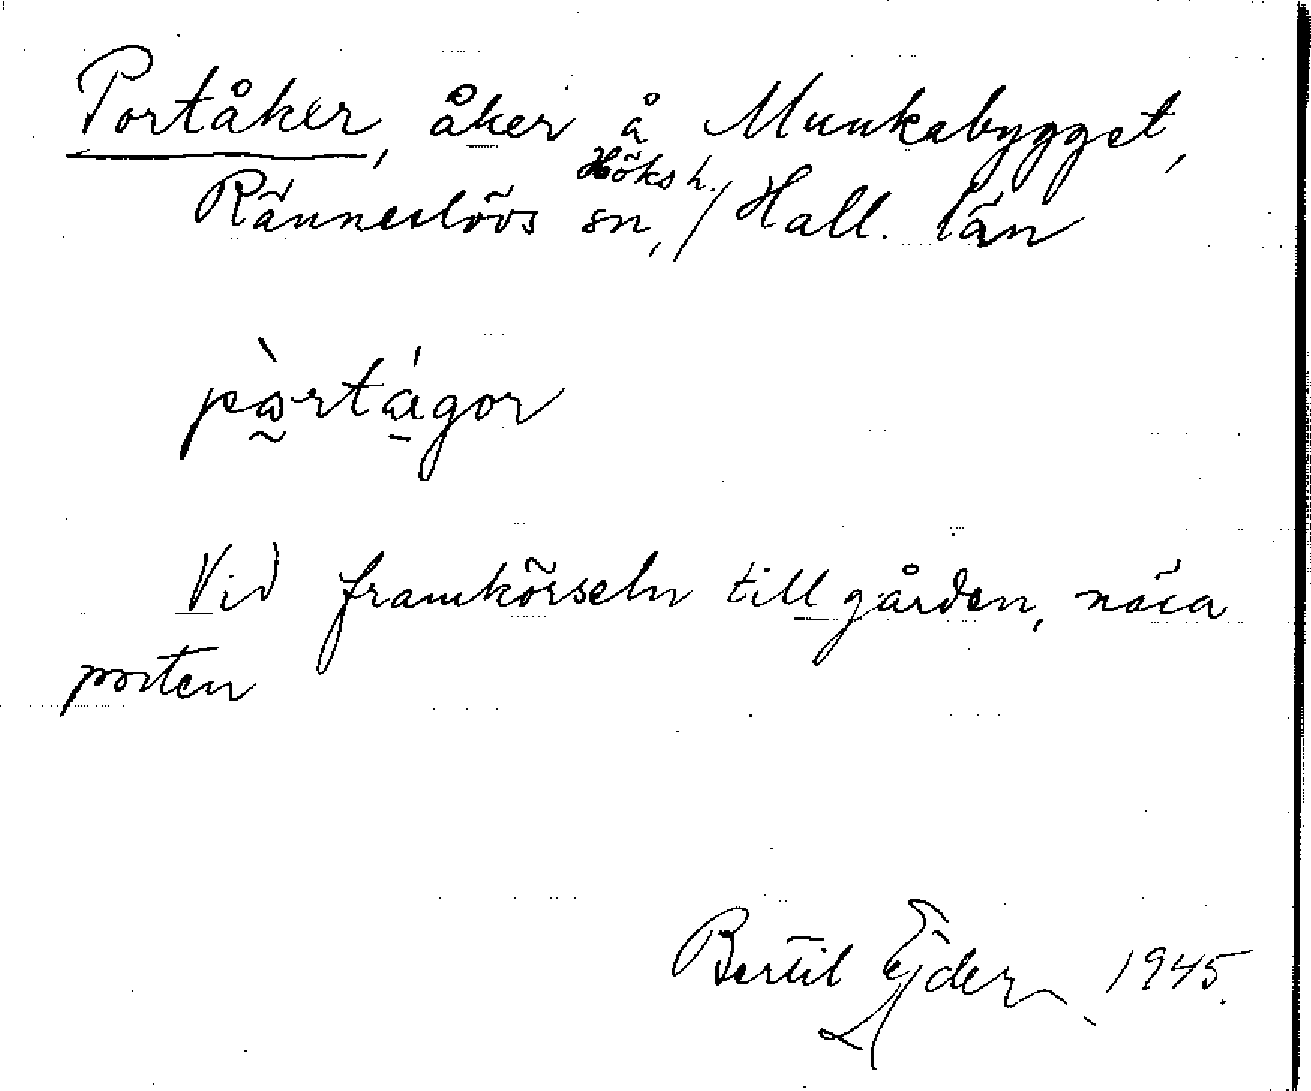 Portåker, åker å Munkabygget,
Ränneslövs sn, Höks h. / Hall. län
pàrtágor
Vid framkörseln till gården, nära
porten
Bertil Ejder 1945.